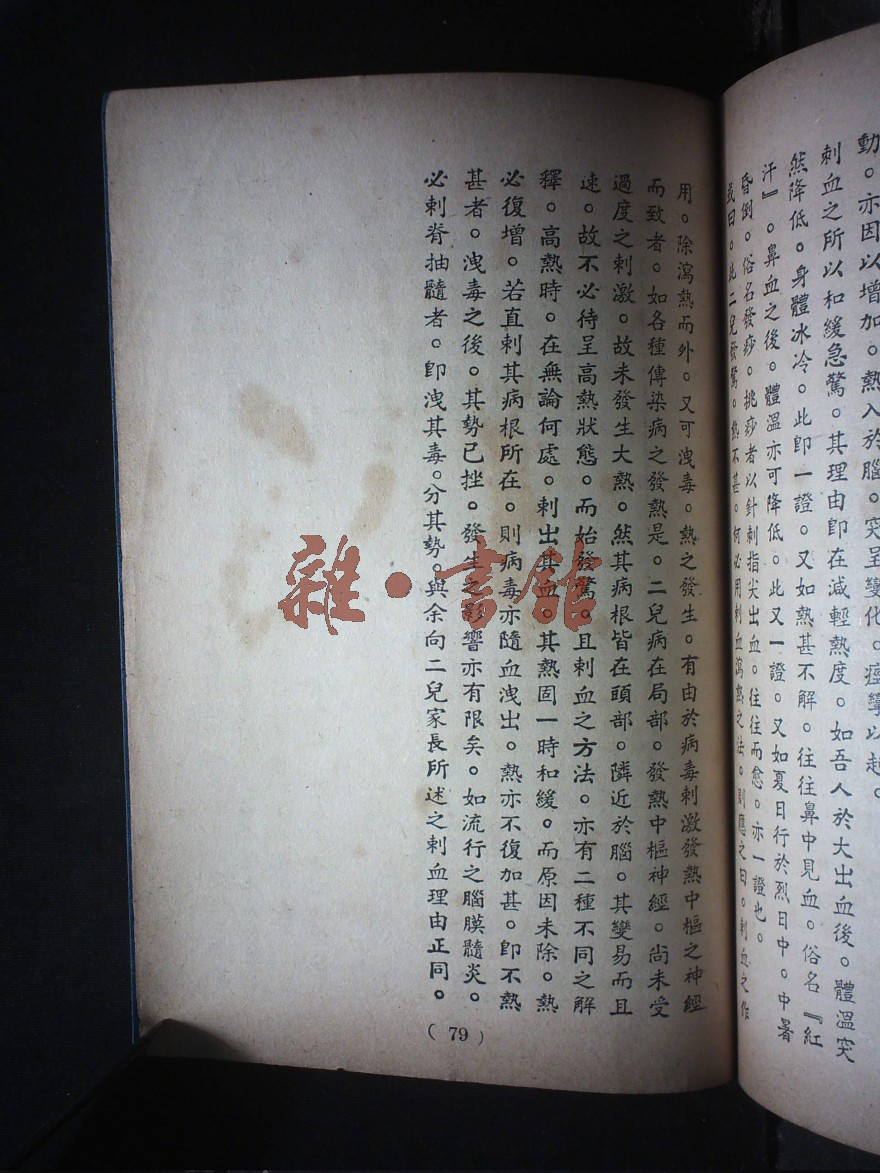 動。亦因以增加。熱入於腦。突呈變化。痙攣以起。
刺血之所以和緩急驚。其理由卽在減輕熱度。如吾人於大出血後。體溫突
然降低。身體冰冷。此卽一證。又如熱甚不解。往往鼻中見血。俗名『紅
汗』。鼻血之後。體溫亦可降低。此又一證。又如夏日行於烈日中。中暑
昏倒。俗名發痧。挑痧者以針刺指尖出血。往往而愈。亦一證也。
或曰。此二兒發驚。熱不甚。何必用刺血瀉熱之法。則應之曰。刺血之作
用。除瀉熱而外。又可洩毒。熱之發生。有由於病毒刺激發熱中樞之神經
而致者。如各種傳染病之發熱是。二兒病在局部。發熱中樞神經。尚未受
過度之刺激。故未發生大熱。然其病根皆在頭部。隣近於腦。其變易而且
速。故不必待呈高熱狀態。而始發驚。且刺血之方法。亦有二種不同之解
釋。高熱時。在無論何處。刺出其血。其熱固一時和緩。而原因未除。熱
必復增。若直刺其病根所在。則病毒亦隨血洩出。熱亦不復加甚。卽不熱
甚者。洩毒之後。其勢已挫。發生之影響亦有限矣。如流行之腦膜髓炎。
必刺脊抽髓者。卽洩其毒。分其勢。與余向二兒家長所述之刺血理由正同。
(79)
雜·書館